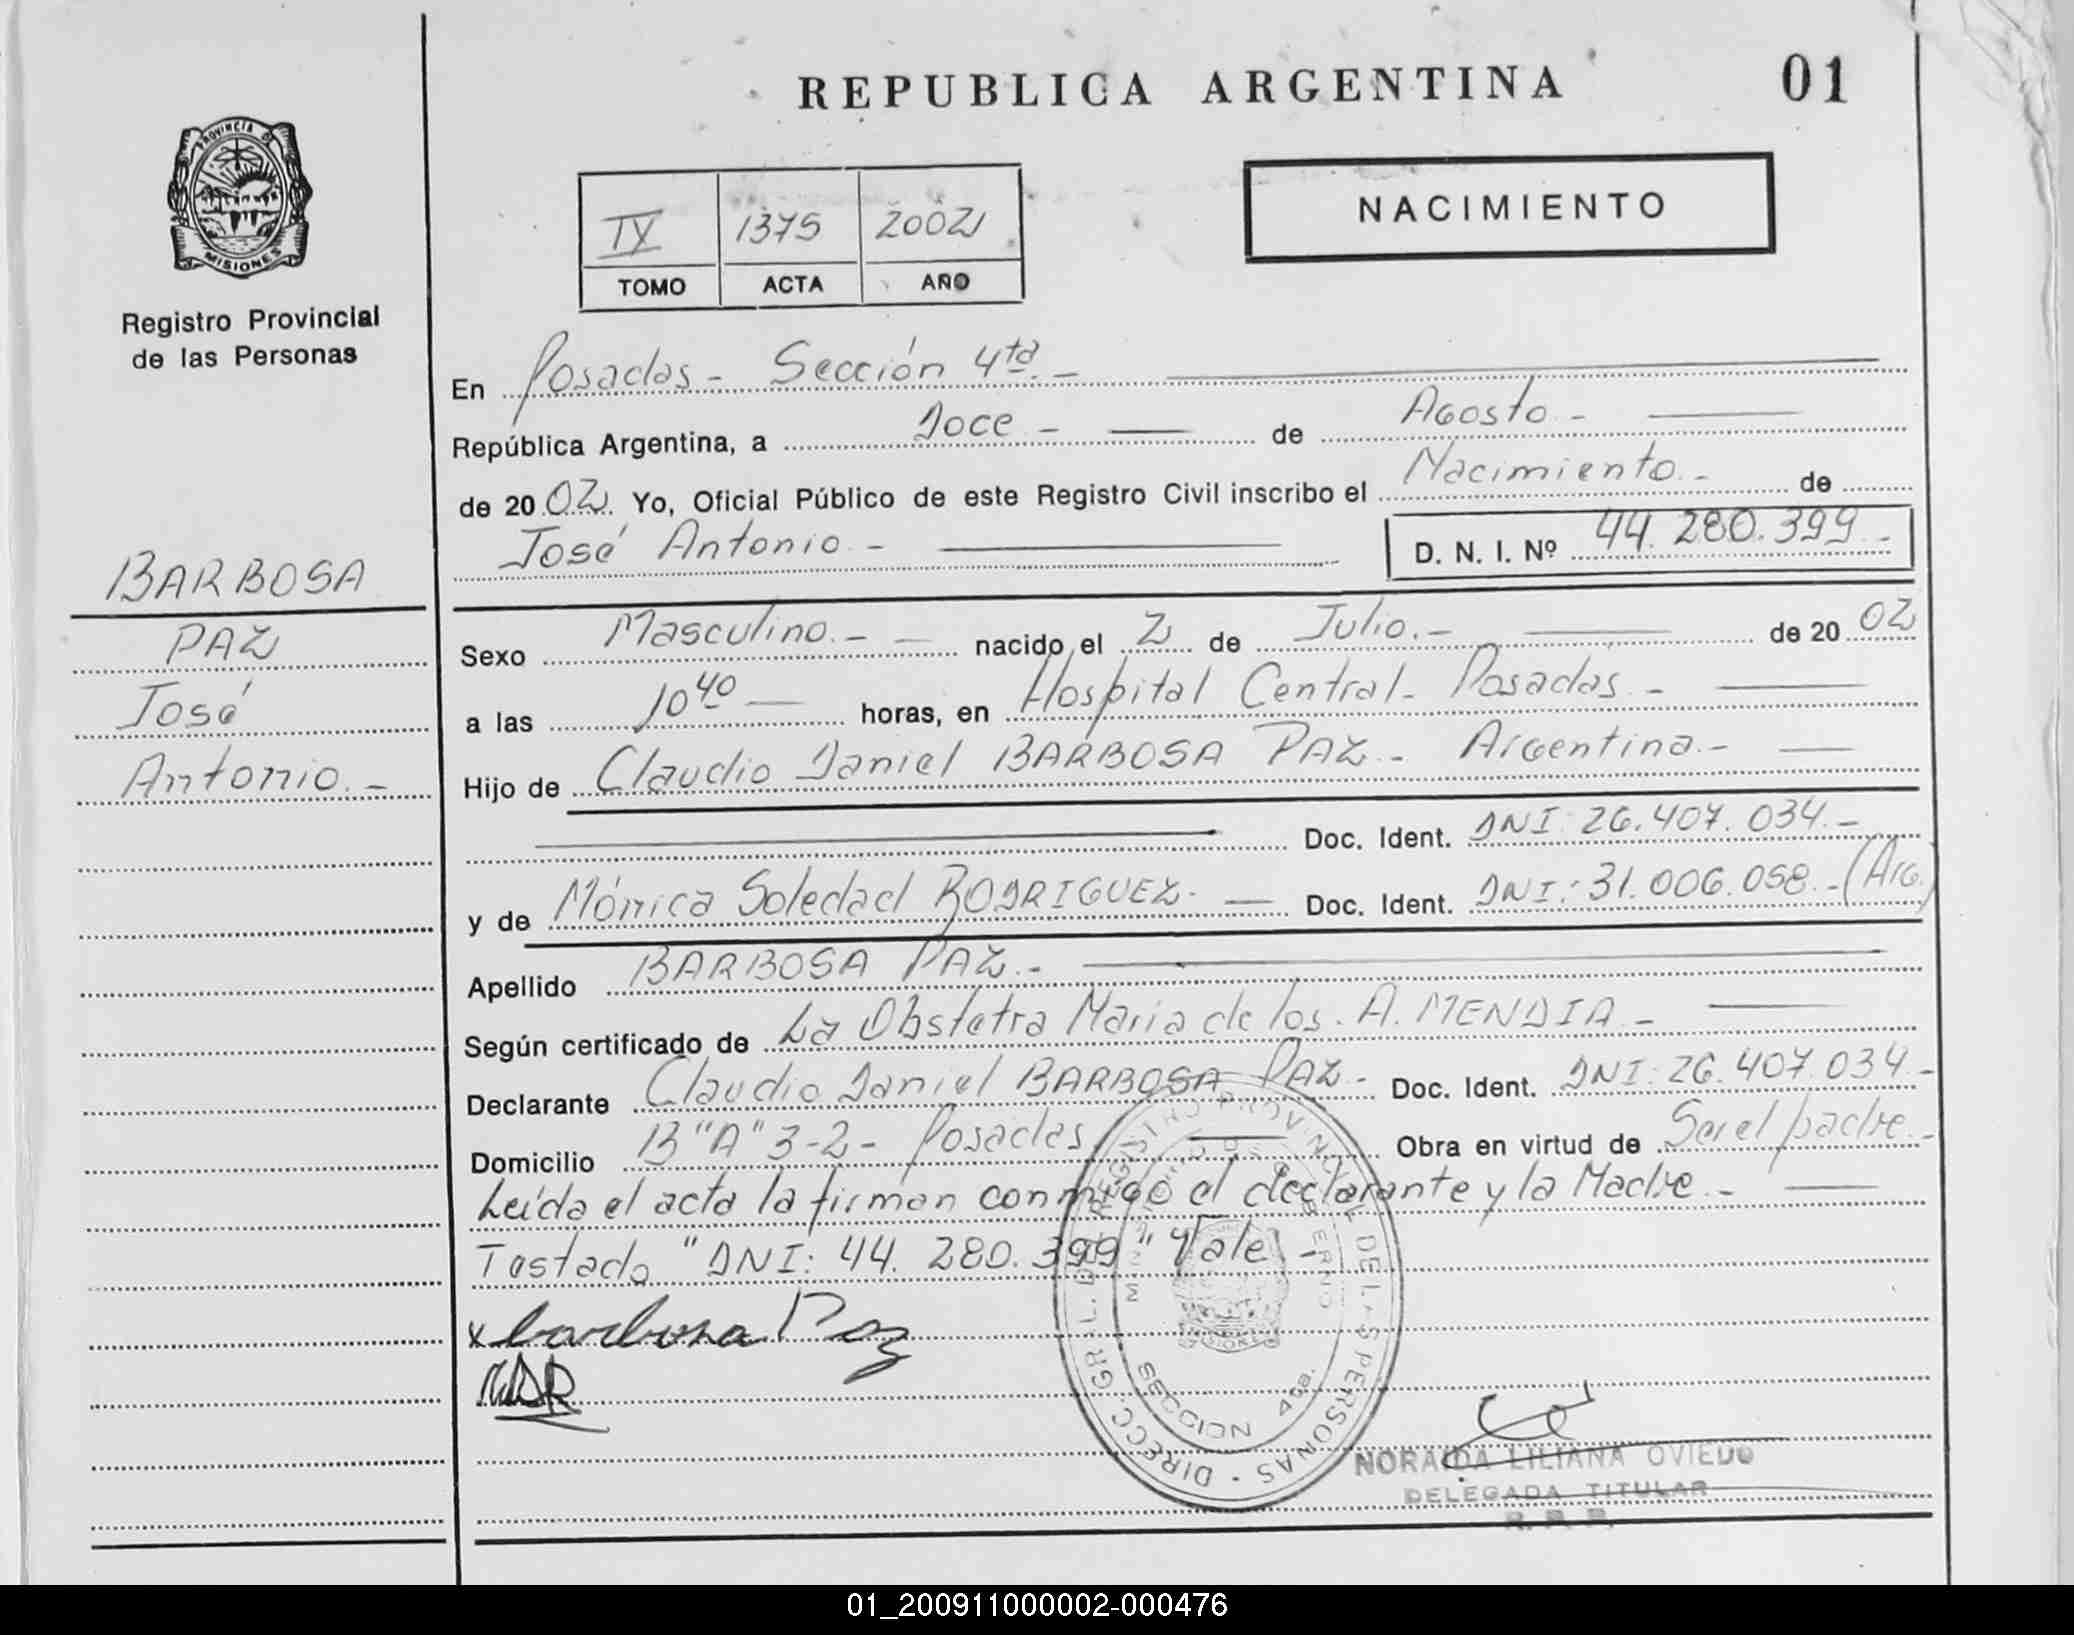 REPUBLICA ARGENTINA
01
PROVINCIA DE
MISIONES
Registro Provincial
de las Personas
IV 1375 2002
TOMO ACTA AÑO
NACIMIENTO
En Posadas - Sección 4ta. -
República Argentina, a Doce - de Agosto -
de 20 02 Yo, Oficial Público de este Registro Civil inscribo el Nacimiento - de
José Antonio - D. N. I. Nº 44.280.399 -
BARBOSA
PAZ
José
Antonio. -
Sexo Masculino. - nacido el 2 de Julio. - de 20 02
a las 10 40 horas, en Hospital Central - Posadas -
Hijo de Claudio Daniel BARBOSA PAZ - Argentina. -
Doc. Ident. DNI: 26.407.034. -
y de Mónica Soledad RODRIGUEZ - Doc. Ident. DNI: 31.006.058. - (Arg.)
Apellido BARBOSA PAZ. -
Según certificado de La Obstetra Maria de los. A. MENDIA -
Declarante Claudio Daniel BARBOSA PAZ - Doc. Ident. DNI: 26.407.034 -
Domicilio B "A" 3-2 - Posadas Obra en virtud de Ser el padre -
Leída el acta la firman conmigo el declarante y la Madre -
Testado "DNI: 44.280.399" Vale -
x barbosa Paz
MSR
DIRECC. GRL. DEL REGISTRO PROVINCIAL DE LAS PERSONAS
SECCION 4ta.
NORAIDA LILIANA OVIEDO
DELEGADA TITULAR
R. P. P.
01_200911000002-000476